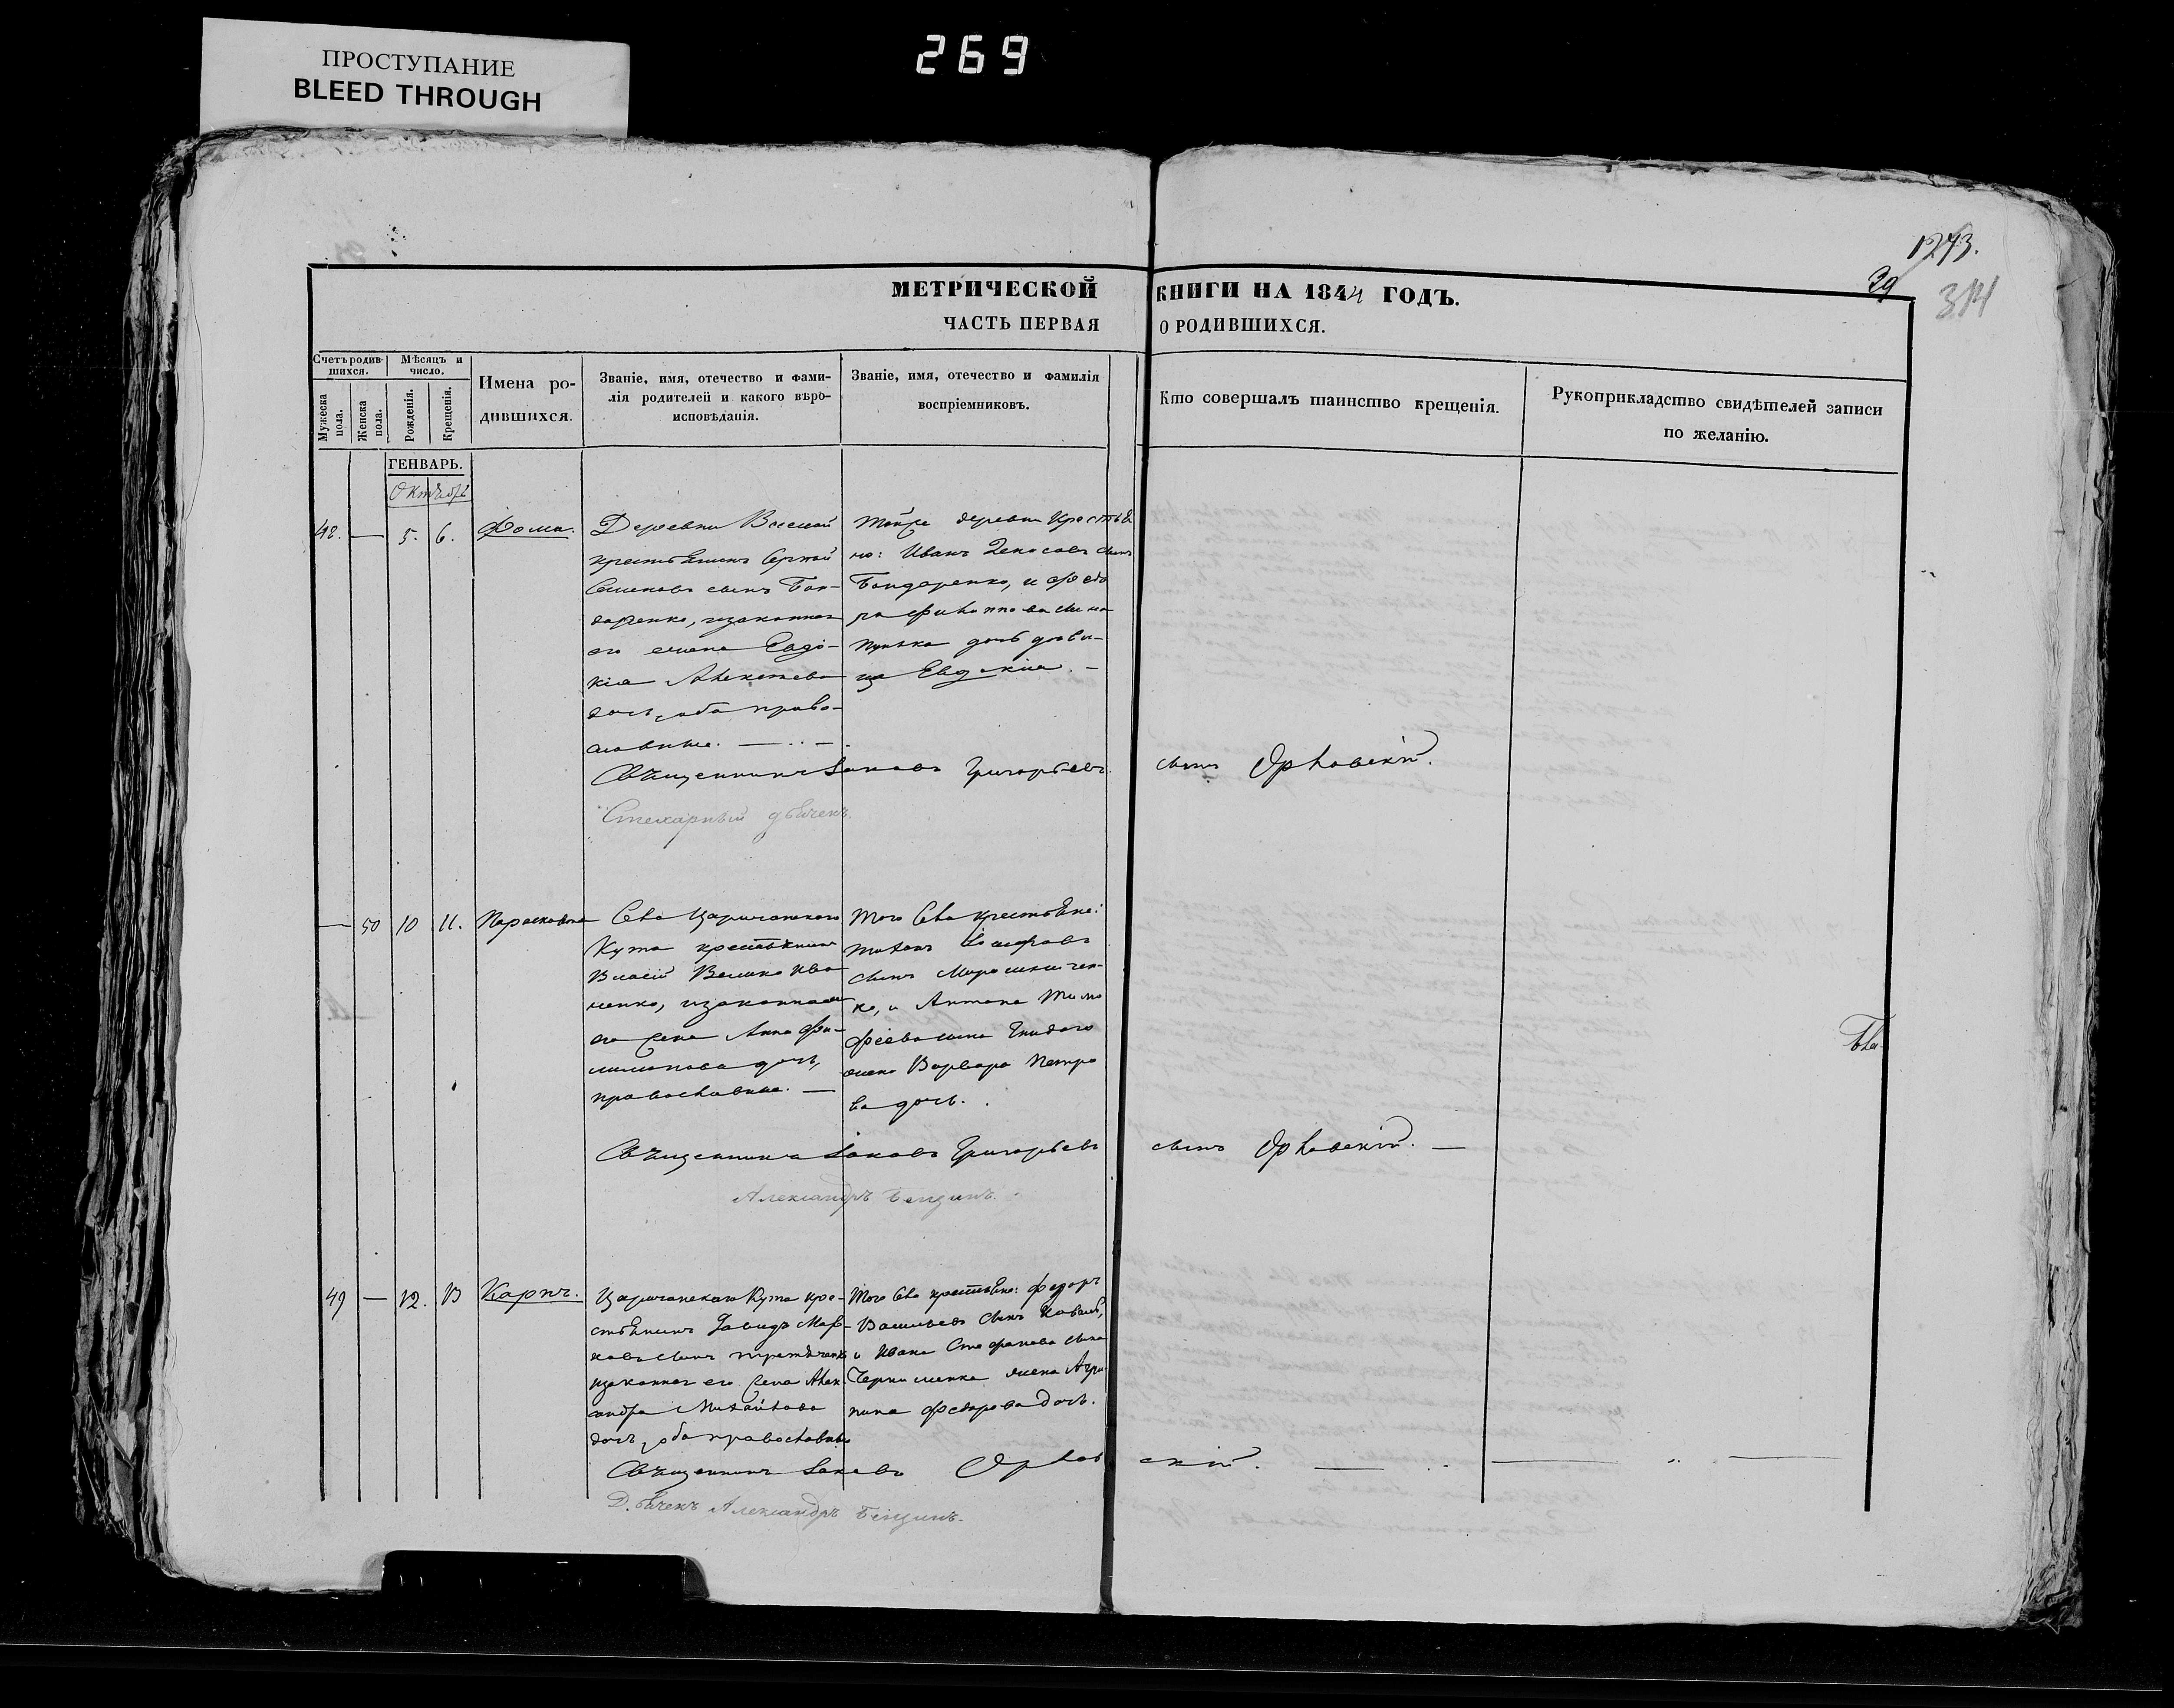 269
ПРОСТУПАНИЕ
BLEED THROUGH
1243.
39
314
МЕТРИЧЕСКОЙ КНИГИ НА 1844 ГОДЪ.
ЧАСТЬ ПЕРВАЯ О РОДИВШИХСЯ.
Счетъ родив-
шихся.
Мужеска пола.
Женска пола.
Мѣсяцъ и
число.
Рожденія.
Крещенія.
Имена ро-
дившихся.
Званіе, имя, отечество и фами-
лія родителей и какого вѣро-
исповѣданія.
Званіе, имя, отечество и фамилія
воспріемниковъ.
Кто совершалъ таинство крещенія.
Рукоприкладство свидѣтелей записи
по желанію.
ГЕНВАРЬ.
Октябрь
48. — 5. 6. Фома.
Деревни
крестьянинъ Сергей
Семеновъ сынъ Бон-
даренко, и законная
его жена Евдо-
кія
дочь, оба право-
славные. —
тойже деревни крестьяне:
Иванъ сынъ
Бондаренко, и Федо
ра Филиппова сына
дочь дѣви-
ца Евдокия. —
Священникъ Іаковъ Григорьевъ сынъ Орловскій.
— 50 10 11. Парасковия
Села Царичанского
Кута крестьянинъ
Власій Велико Ива
ненко, и законная
его жена Анна Фи-
лимонова дочь,
православные. —
Того Села крестьяне:
сынъ Мирошничен-
ко, и Антона Тимо
феева сына Гнидого
жена Варвара Петро
ва дочь.
Священникъ Іаковъ Григорьевъ сынъ Орловскій. —
Александръ
49 — 12. 13 Карпъ.
Царичанского Кута кре-
стьянинъ Давидъ Мар-
ковъ сынъ
и законная его жена Алек-
сандра Михайлова
дочь, оба православные
Того Села крестьяне: Федоръ
Васильевъ сынъ Коваль,
и Ивана Стефанова сына
жена Агри-
пина Федорова дочь.
Священникъ Іаковъ Орловскій. —
Александръ